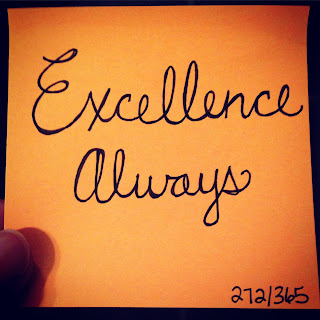 Excellence
Always
272/365